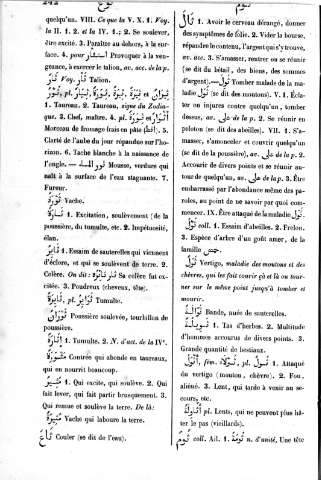 quelqu'un. VIII. Ce que la V. X. 1 Foy.
la II. 1. 2. et la IV. 1.; 2. Se soulever,
être excité. 3. Paraître au dehors, à la sur-
face. 4. Provoquer à la ven-
geance, à exercer le talion, av. acc. de la p.
ثَأْر Voy. Talion.
ثَوْر pl.
1. Taureau. 2. Taureau, signe du Zodia-
que. 3. Chef, maître. 4. pl.
Morceau de fromage frais en pâte 5.
Clarté de l'aube du jour répandue sur l'ho-
rizon. 6. Tache blanche à la naissance de
l'ongle. — ثور الماء Mousse, verdure qui
naît à la surface de l'eau stagnante. 7.
Fureur.
ثَوْرَة Vache.
1. Excitation, soulèvement (de la
poussière, du tumulte, etc. 2. Impétuosité,
élan.
ثَائِر 1. Essaim de sauterelles qui viennent
d'éclore, et qui se soulèvent de terre. 2.
Colère. On dit: ثار ثائره Sa colère fut ex-
citée. 3. Poudreux (cheveux, tête).
ثَائِرَة, pl. ثَوَائِر Tumulte.
ثَوَرَان Poussière soulevée, tourbillon de
poussière.
إِثَارَة 1. Tumulte. 2. N. d'act. de la IVe.
Contrée qui abonde en taureaux,
qui en nourrit beaucoup.
مُثِير 1. Qui excite, qui soulève. 2. Qui
fait lever, qui fait partir brusquement. 3.
Qui remue et soulève la terre. De là:
مُثِيرَة Vache qui laboure la terre.
ثَاعَ Couler (se dit de l'eau).
ثَالَ 1. Avoir le cerveau dérangé, donner
des symptômes de folie. 2. Vider la bourse,
répandre le contenu, l'argent qui s'y trouve,
av. acc. 3. S'amasser, rentrer ou se réunir
(se dit du bétail, des biens, des sommes
d'argent). — ثَوِلَ Tomber malade de la ma-
ladie ثَوَل (se dit des moutons). V. 1. Écla-
ter en injures contre quelqu'un, tomber
dessus, av. على de la p. 2. Se réunir en
peloton (se dit des abeilles). VII. 1. S'a-
masser, s'amonceler et couvrir quelqu'un
(se dit de la poussière), av. على de la p. 2.
Accourir de divers points et se réunir au-
tour de quelqu'un, av. على de la p. 3. Être
embarrassé par l'abondance même des pa-
roles, au point de ne savoir par quoi com-
mencer. IX. Être attaqué de la maladie ثَوَل.
ثَوْل coll. 1. Essaim d'abeilles. 2. Frelon.
3. Espèce d'arbre d'un goût amer, de la
famille حمض.
ثَوَل Vertigo, maladie des moutons et des
chèvres, qui les fait courir çà et là ou tour-
ner sur le même point jusqu'à tomber et
mourir.
ثُوَالَة Bande, nuée de sauterelles.
ثَوِيلَة 1. Tas d'herbes. 2. Multitude
d'hommes accourus de divers points. 3.
Grande quantité de bestiaux.
أَثْوَل, fém. ثَوْلَاء, pl. ثُول 1. Attaqué
du vertigo (mouton, chèvre). 2. Fou,
aliéné. 3. Lent, qui tarde à venir au se-
cours, etc.
pl. Lents, qui ne peuvent plus hâ-
ter le pas (vieillards).
ثُوم coll. Ail. 1. ثُومَة n. d'unité, Une tête